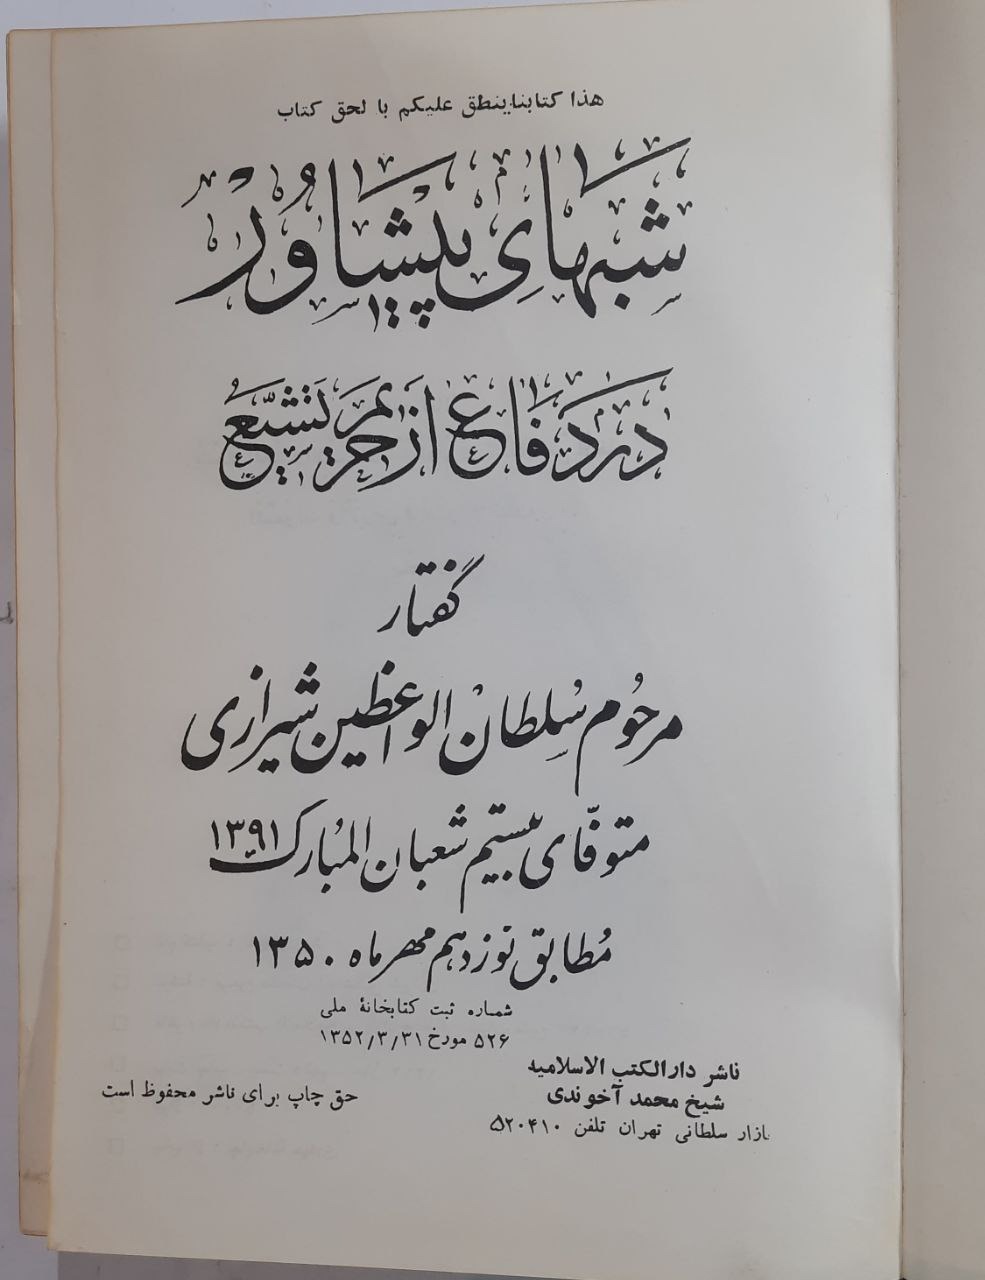 هذا کتابنا ینطق علیکم با لحق کتاب
شبهای پیشاور
در دفاع از حریم تشیع
گفتار
مرحوم سلطان الواعظین شیرازی
متوفّای بیستم شعبان المبارک ۱۳۹۱
مطابق نوزدهم مهرماه ۱۳۵۰
شماره ثبت کتابخانهٔ ملی
۵۲۶ مورخ ۱۳۵۲/۳/۳۱
ناشر دارالکتب الاسلامیه
شیخ محمد آخوندی
بازار سلطانی تهران تلفن ۵۲۰۴۱۰
حق چاپ برای ناشر محفوظ است